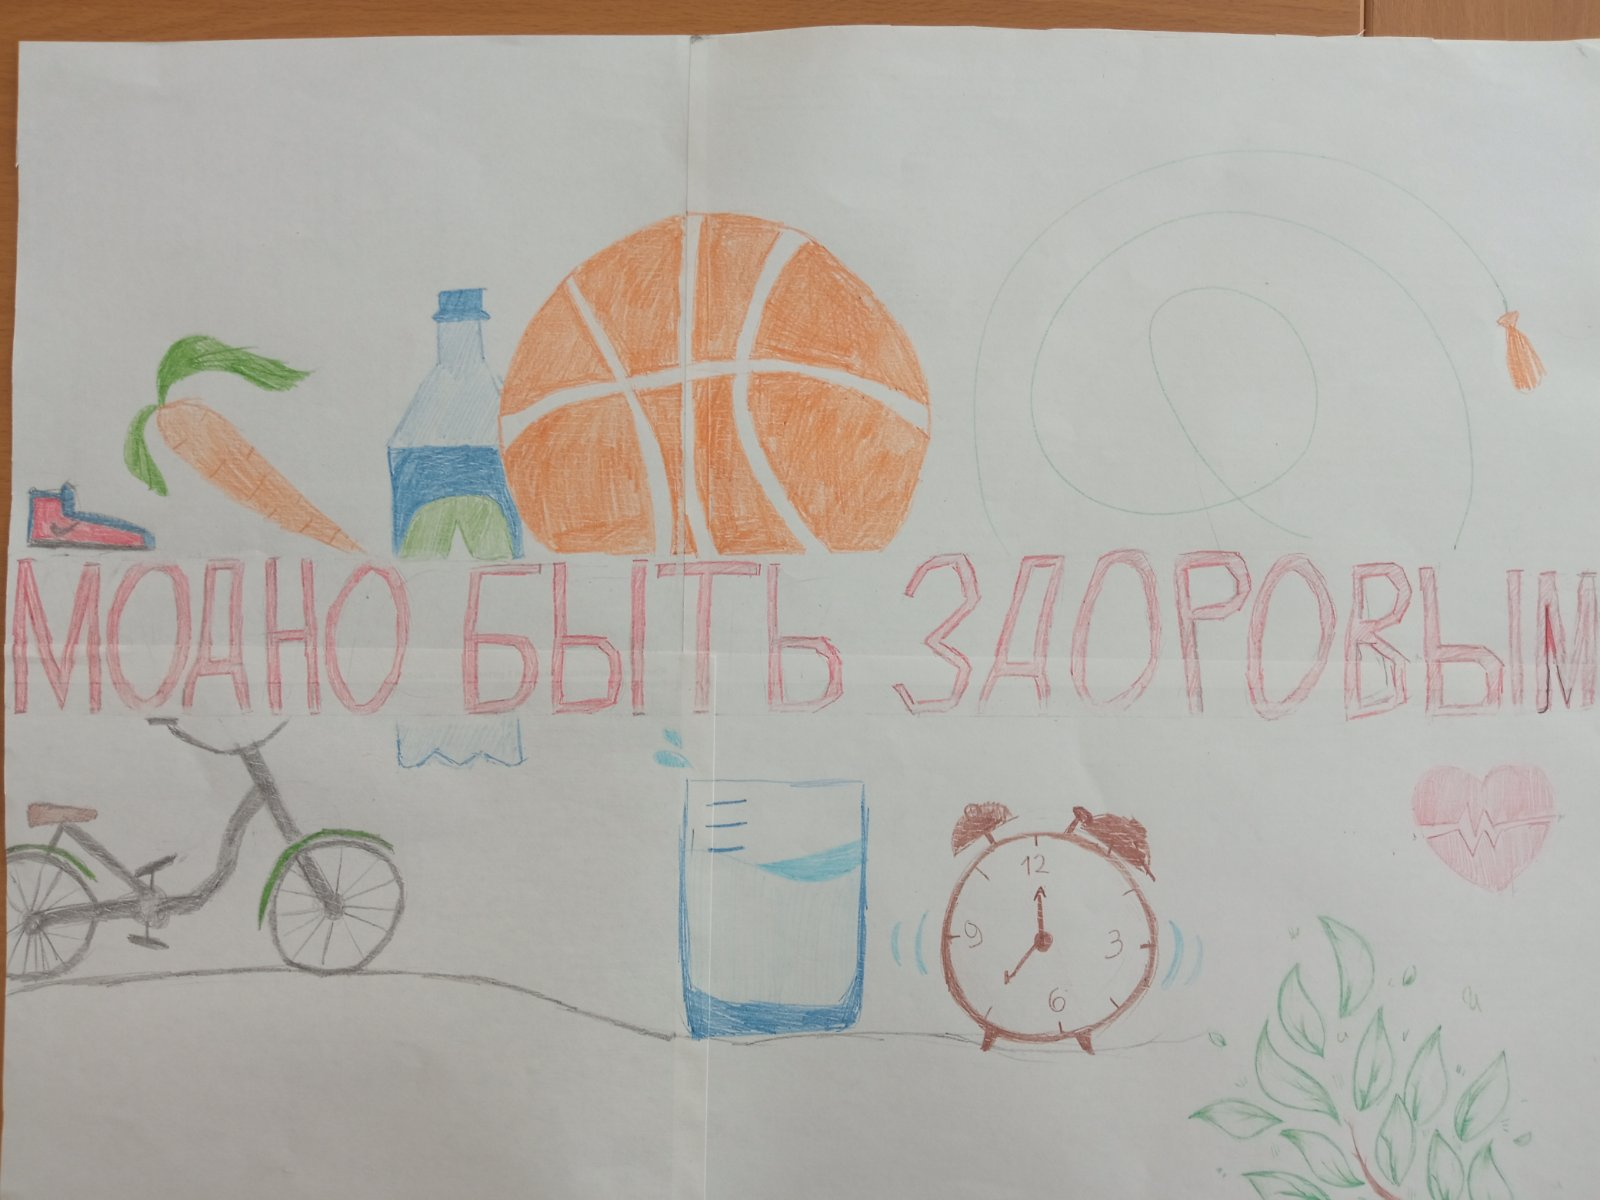 МОДНО БЫТЬ ЗДОРОВЫМ
12
9 3
6